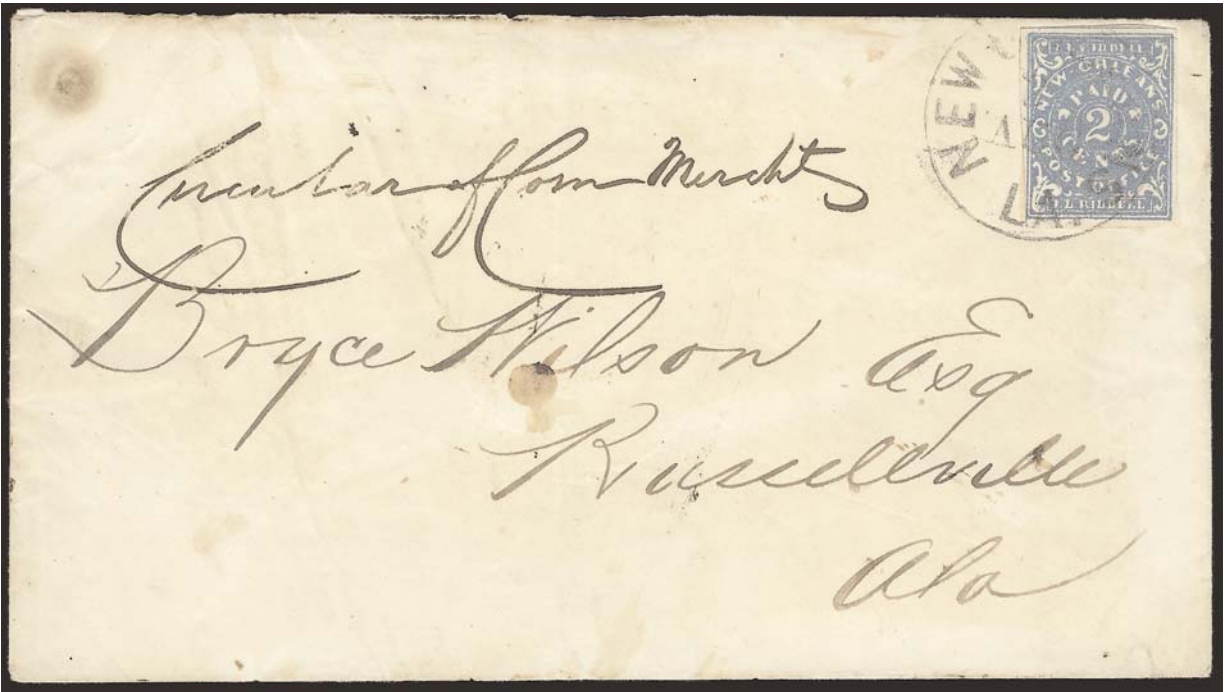 J. L. RIDDELL
NEW ORLEANS
PAID
2
CENTS
POST OFFICE
J. L. RIDDELL
NEW
LA.
Circular of Com Merchts
Bryce Wilson Esq
Russellville
Ala